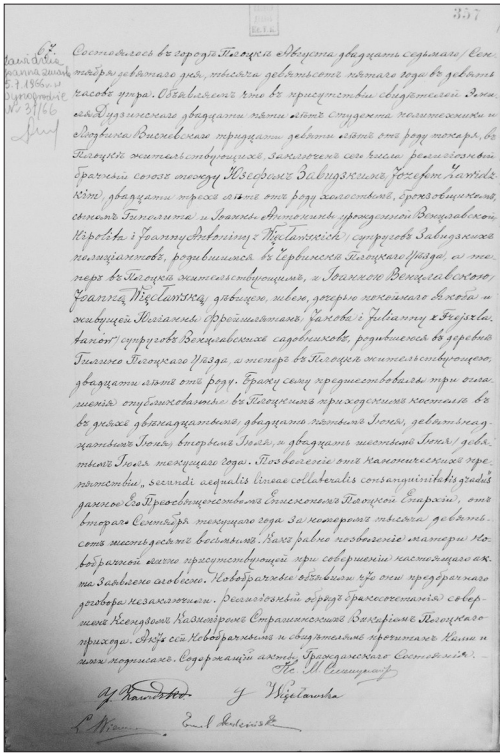 357
67.
Zawidzka
Joanna zmarła
Состоялось въ городѣ Плоцкѣ Августа двадцать седьмаго / Сен-
тября девятаго дня, тысяча девятьсотъ пятаго года въ девять
часовъ утра. Объявляемъ что въ присутствіи свидѣтелей Эми-
ля Дудзинскаго двадцати пяти лѣтъ студента политехника и
Людвика Висневскаго тридцати девяти лѣтъ отъ роду токаря, въ
Плоцкѣ жительствующихъ, заключенъ сего числа религіозный
брачный союзъ между Юзефомъ Завидзкимъ, Jozefem Zawidz-
kim, двадцати трехъ лѣтъ отъ роду холостымъ, бронзовщикомъ,
сыномъ Гиполита и Іоанны Антонины урожденной Венцлавской
Hipolita i Joanny Antoniny z Więcławskich / супруговъ Завидзкихъ
полиціантовъ, родившимся въ Червинскѣ Плоцкаго Уѣзда, а те-
перь въ Плоцкѣ жительствующимъ, и Іоанною Венцлавскою /
Joanną Więcławską, дѣвицею, швею, дочерью покойнаго Якоба и
живущей Юліанны Фрейшлятанъ / Jakoba i Julianny z Frejszla-
tanow / супруговъ Венцлавскихъ садовниковъ, родившеюся въ деревнѣ
Гилино Плоцкаго Уѣзда, а теперь въ Плоцкѣ жительствующею,
двадцати лѣтъ отъ роду. Браку сему предшествовали три огла-
шенія опубликованныя въ Плоцкомъ приходскомъ костелѣ въ
въ дняхъ двѣнадцатымъ / двадцать пятымъ Іюня, девятнад-
цатымъ Іюня / вторымъ Іюля, и двадцать шестымъ Іюня / девя-
тымъ Іюля текущаго года. Позволеніе отъ каноническихъ пре-
пятствій „secundi aequalis lineae collateralis consanguinitatis gradus"
данное Его Преосвященствомъ Епископомъ Плоцкой Епархіи, отъ
втораго Сентября текущаго года за номеромъ тысяча девять-
сотъ шестьдесятъ восьмымъ. Какъ равно позволеніе матери но-
вобрачной лично присутствующей при совершеніи настоящаго ак-
та заявлено словесно. Новобрачные объявили что они предбрачнаго
договора не заключили. Религіозный обрядъ бракосочетанія совер-
шенъ Ксендзомъ Казиміромъ Страшинскимъ Викаріемъ Плоцкаго
прихода. Актъ сей Новобрачнымъ и свидѣтелямъ прочитанъ Нами и
ими подписанъ. Содержащій акты Гражданскаго Состоянія.
J. Zawidzki J Więcławska